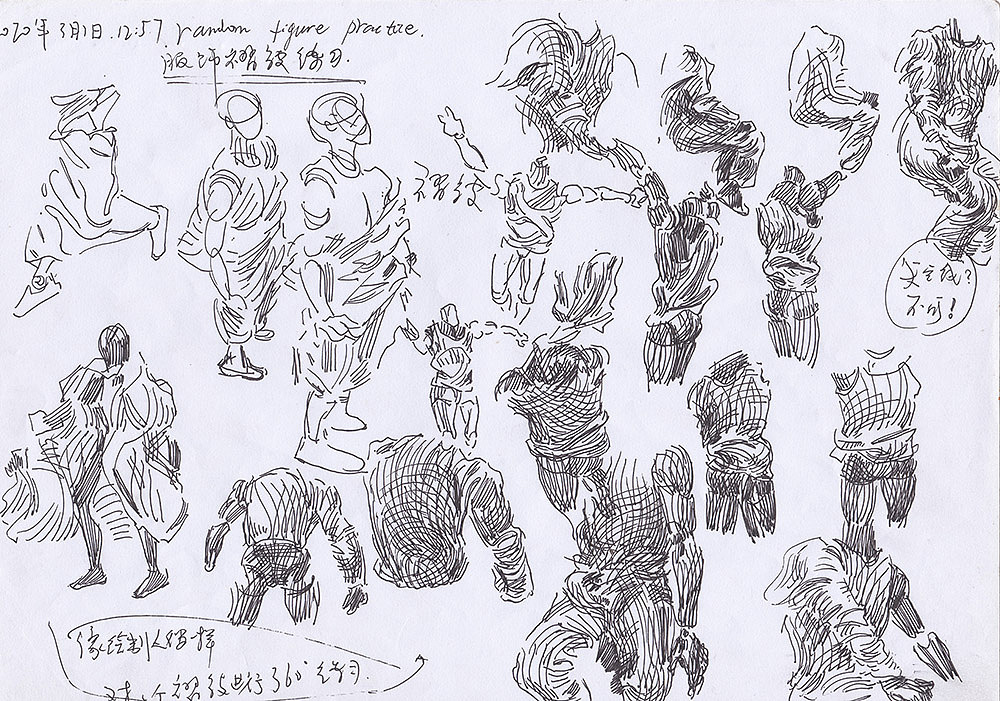 2020年3月1日.12:57. random figure practice.
服饰褶皱练习.
褶皱
交叉线?
不可!
像绘制人偶一样
对这个褶皱进行360°练习.